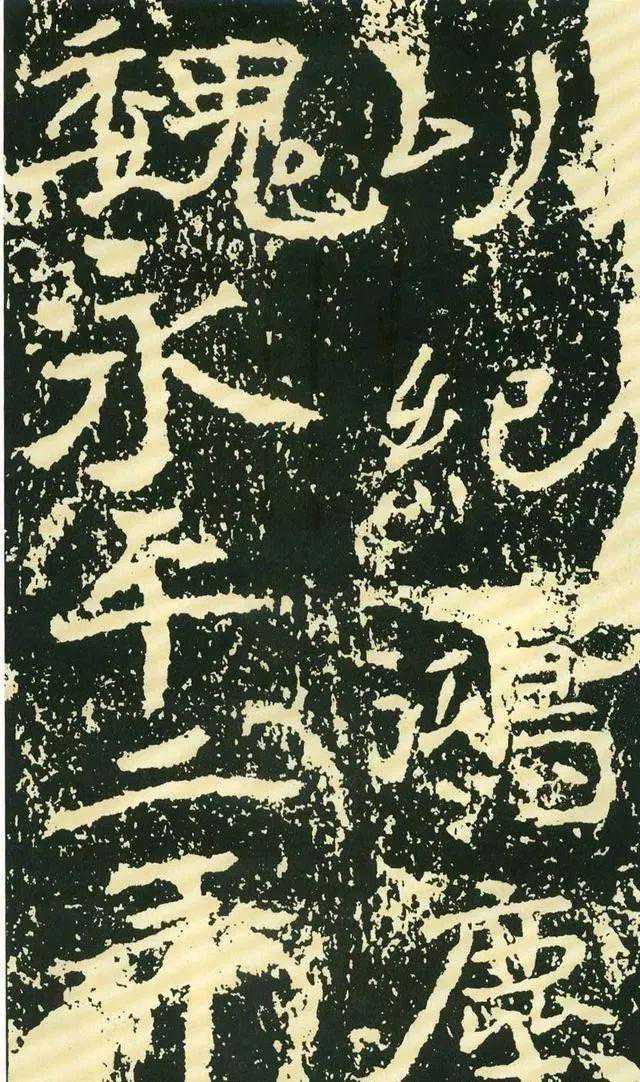 以紀鴻塵
魏永平二年